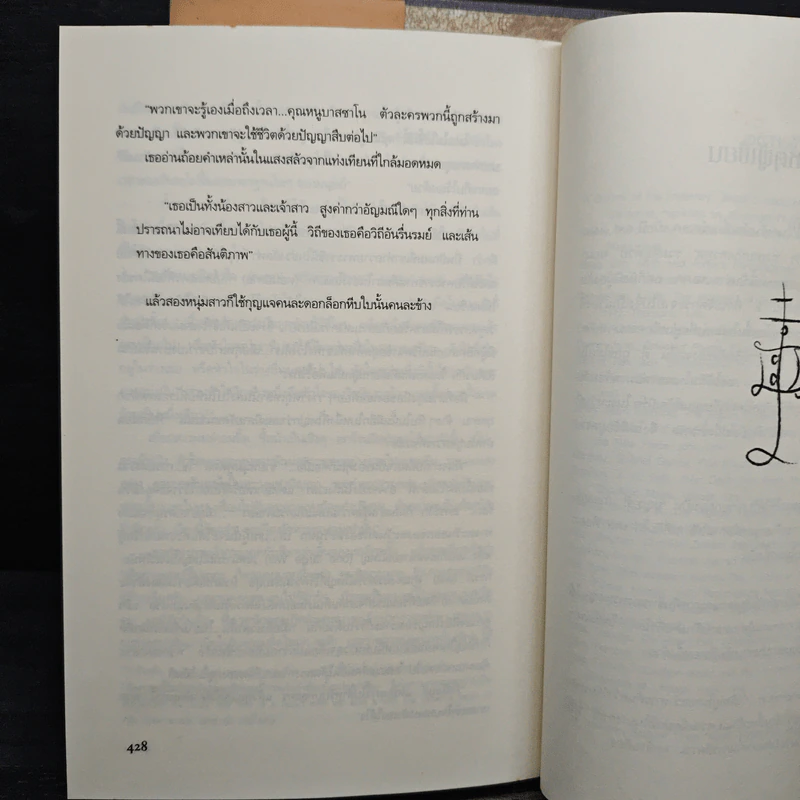 "พวกเขาจะรู้เองเมื่อถึงเวลา...คุณหนูบาสซาโน ตัวละครพวกนี้ถูกสร้างมา
ด้วยปัญญา และพวกเขาจะใช้ชีวิตด้วยปัญญาสืบต่อไป"
เธออ่านถ้อยคำเหล่านั้นในแสงสลัวจากแท่งเทียนที่ใกล้มอดหมด
"เธอเป็นทั้งน้องสาวและเจ้าสาว สูงค่ากว่าอัญมณีใดๆ ทุกสิ่งที่ท่าน
ปรารถนาไม่อาจเทียบได้กับเธอผู้นี้ วิถีของเธอคือวิถีอันรื่นรมย์ และเส้น
ทางของเธอคือสันติภาพ"
แล้วสองหนุ่มสาวก็ใช้กุญแจคนละดอกล็อกหีบใบนั้นคนละข้าง
428